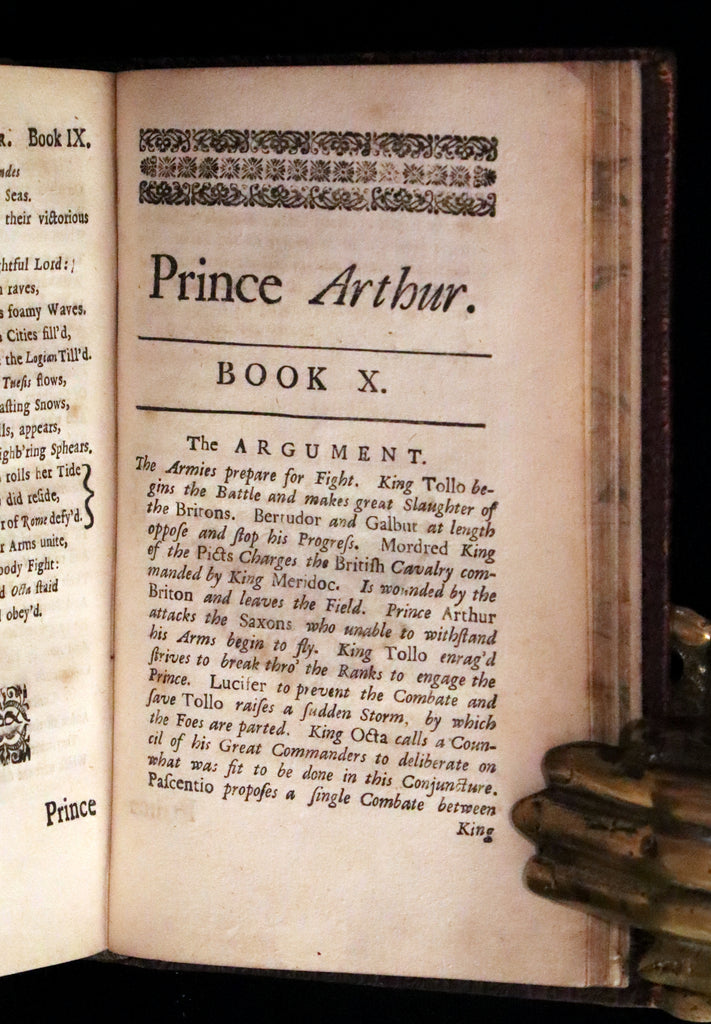 R. Book IX.
Seas.
their victorious
Lord:
raves,
foamy Waves.
Cities fill'd,
the Logian Till'd.
Tuesis flows,
Snows,
appears,
Sphears.
rolls her Tide
did reſide,
of Rome defy'd.
Arms unite,
Fight:
Octa ſtaid
obey'd.
Prince
Prince Arthur.
BOOK X.
The ARGUMENT.
The Armies prepare for Fight. King Tollo be-
gins the Battle and makes great Slaughter of
the Britons. Bertudor and Galbut at length
oppoſe and ſtop his Progreſs. Mordred King
of the Picts Charges the Britiſh Cavalry com-
manded by King Meridoc. Is wounded by the
Briton and leaves the Field. Prince Arthur
attacks the Saxons who unable to withſtand
his Arms begin to fly. King Tollo enrag'd
ſtrives to break thro' the Ranks to engage the
Prince. Lucifer to prevent the Combate and
ſave Tollo raiſes a ſudden Storm, by which
the Foes are parted. King Octa calls a Coun-
cil of his Great Commanders to deliberate on
what was fit to be done in this Conjuncture.
Paſcentio propoſes a ſingle Combate between
King